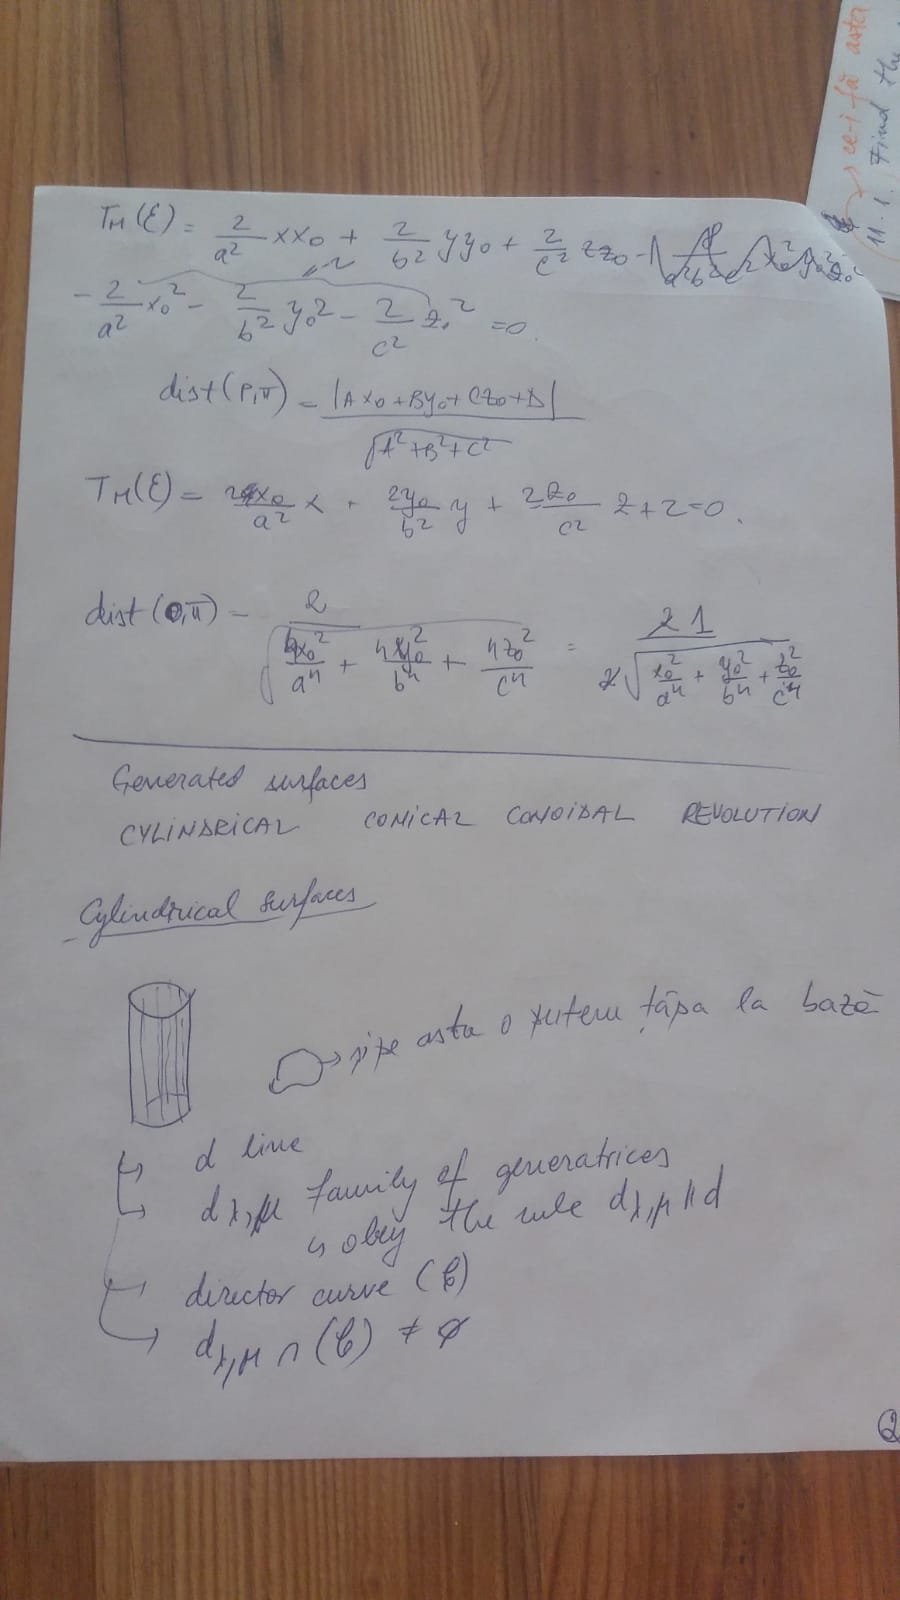 T_M(ℰ) = 2/a² xx₀ + 2/b² yy₀ + 2/c² zz₀
-2
- 2/a² x₀² - 2/b² y₀² - 2/c² z₀² = 0.
dist(P,π) = |Ax₀ + By₀ + Cz₀ + D| / √(A² + B² + C²)
T_M(ℰ) = 2x₀/a² x + 2y₀/b² y + 2z₀/c² z + 2 = 0.
dist(O,π) = 2 / √(4x₀²/a⁴ + 4y₀²/b⁴ + 4z₀²/c⁴) = 2 1 / 2√(x₀²/a⁴ + y₀²/b⁴ + z₀²/c⁴)
Generated surfaces
CYLINDRICAL CONICAL CONOIDAL REVOLUTION
Cylindrical surfaces
→ și pe asta o putem țâpa la bază
d line
d_λ,μ family of generatrices
↳ obey the rule d_λ,μ ∥ d
director curve (𝒞)
d_λ,μ ∩ (𝒞) ≠ ∅
2
→ ce-i fă asta
11.1. Find the